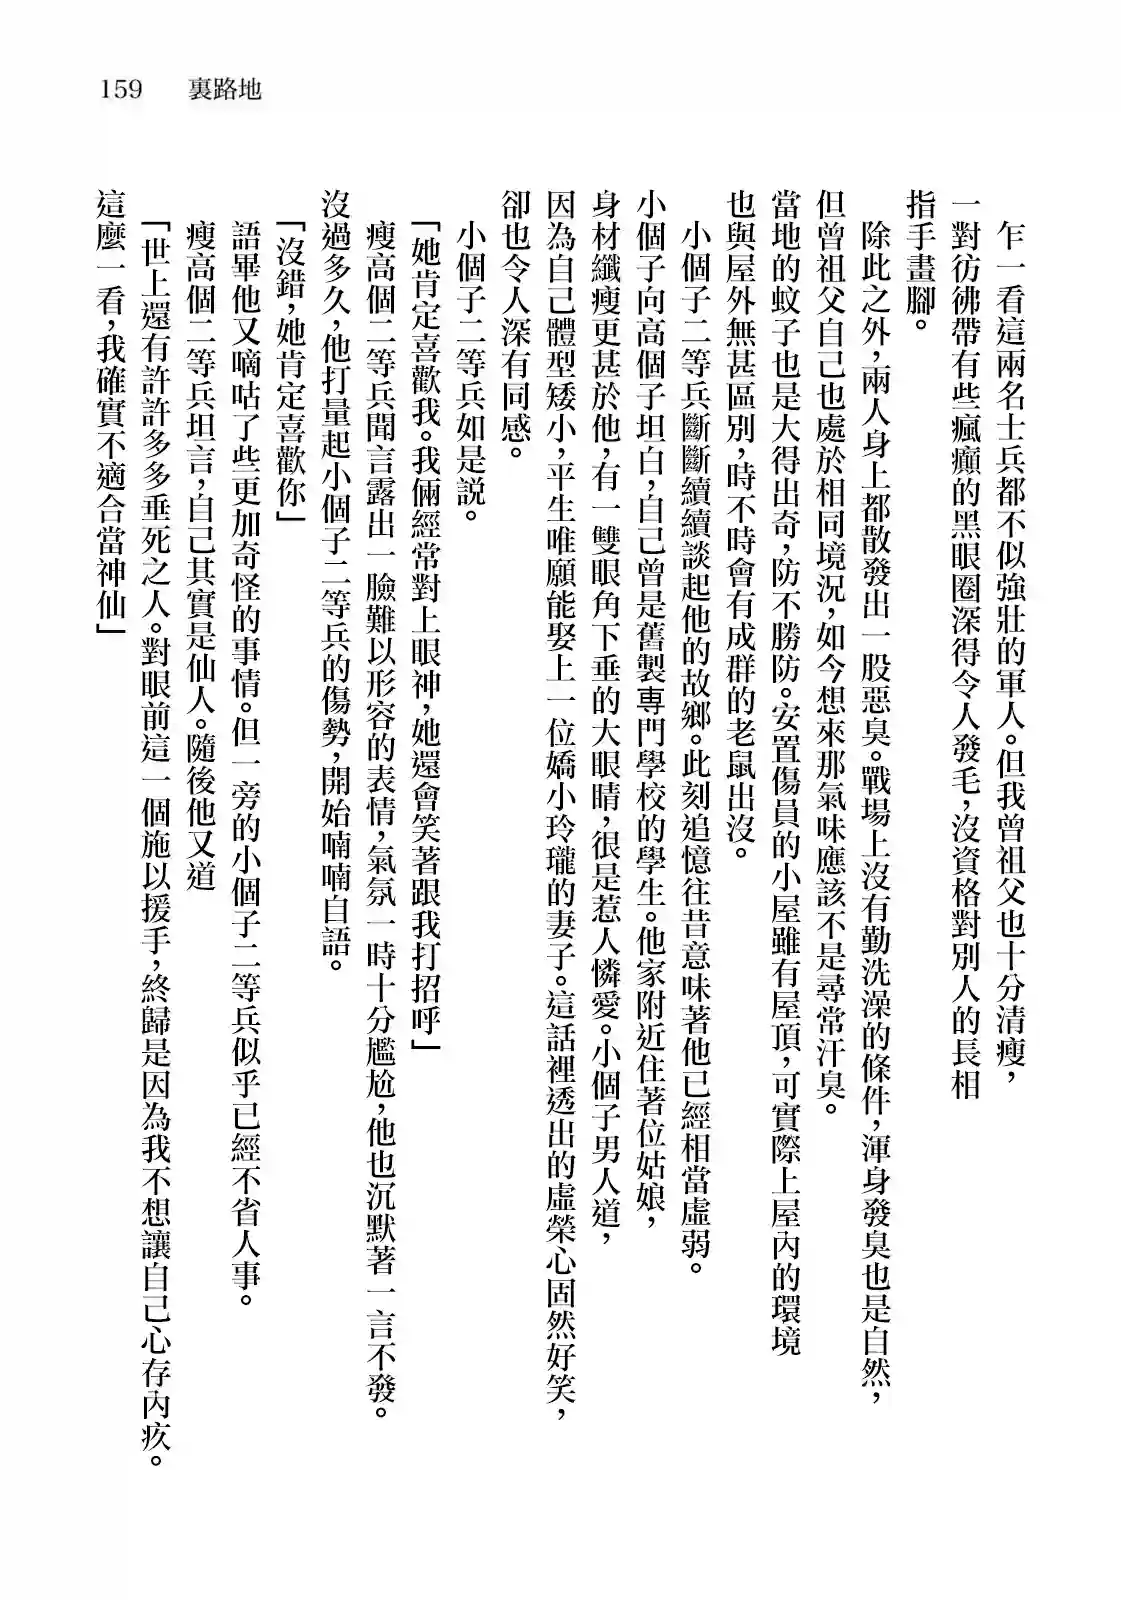 159　裏路地
乍一看這兩名士兵都不似強壯的軍人。但我曾祖父也十分清瘦，
一對彷彿帶有些瘋癲的黑眼圈深得令人發毛，沒資格對別人的長相
指手畫腳。
除此之外，兩人身上都散發出一股惡臭。戰場上沒有勤洗澡的條件，渾身發臭也是自然，
但曾祖父自己也處於相同境況，如今想來那氣味應該不是尋常汗臭。
當地的蚊子也是大得出奇，防不勝防。安置傷員的小屋雖有屋頂，可實際上屋內的環境
也與屋外無甚區別，時不時會有成群的老鼠出沒。
小個子二等兵斷斷續續談起他的故鄉。此刻追憶往昔意味著他已經相當虛弱。
小個子向高個子坦白，自己曾是舊製專門學校的學生。他家附近住著位姑娘，
身材纖瘦更甚於他，有一雙眼角下垂的大眼睛，很是惹人憐愛。小個子男人道，
因為自己體型矮小，平生唯願能娶上一位嬌小玲瓏的妻子。這話裡透出的虛榮心固然好笑，
卻也令人深有同感。
小個子二等兵如是説。
「她肯定喜歡我。我倆經常對上眼神，她還會笑著跟我打招呼」
瘦高個二等兵聞言露出一臉難以形容的表情，氣氛一時十分尷尬，他也沉默著一言不發。
沒過多久，他打量起小個子二等兵的傷勢，開始喃喃自語。
「沒錯，她肯定喜歡你」
語畢他又嘀咕了些更加奇怪的事情。但一旁的小個子二等兵似乎已經不省人事。
瘦高個二等兵坦言，自己其實是仙人。隨後他又道
「世上還有許許多多垂死之人。對眼前這一個施以援手，終歸是因為我不想讓自己心存內疚。
這麼一看，我確實不適合當神仙」